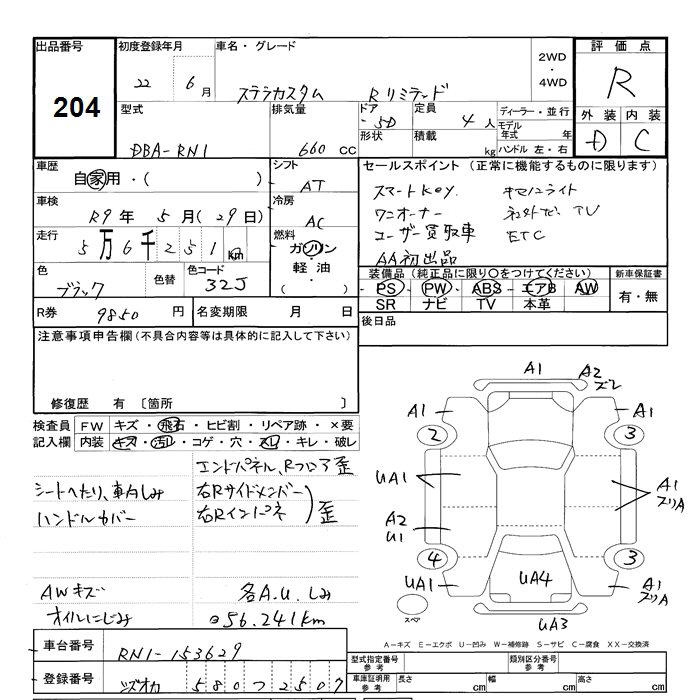 出品番号
204
初度登録年月
22 6月
車名・グレード
ステラカスタム Rリミテッド
2WD
・
4WD
評価点
R
外装 内装
D C
型式
DBA-RN1
排気量
660 cc
ドア
5D
形状
定員
4人
積載
kg
ディーラー・並行
モデル年式 年
ハンドル 左・右
車歴
自家用・( )
車検
R9年 5月(29日)
走行
5万6千251km
色
ブラック
色替
色コード
32J
シフト
AT
冷房
AC
燃料
ガソリン
軽油
( )
セールスポイント (正常に機能するものに限ります)
スマートKey. キセノンライト
ワンオーナー
TV
ユーザー買取車 ETC
AA初出品
装備品 (純正品に限り○をつけてください)
PS PW ABS エアB AW
SR ナビ TV 本革
新車保証書
有・無
R券 9850 円
名変期限 月 日
後日品
注意事項申告欄(不具合内容等は具体的に記入して下さい)
修復歴 有 〔箇所 〕
検査員記入欄
FW キズ・飛石・ヒビ割・リペア跡・×要
内装 キズ・汚レ・コゲ・穴・スレ・キレ・破レ
エンドパネル、Rフロア歪
シートへたり、車内しみ
右Rサイドメンバー
ハンドルカバー
右Rインパネ
歪
AWキズ
各A.U.しみ
オイルにじみ
56.241km
A1
A2
ズレ
A1
A1
2
3
UA1
A1
ズリA
A2
U1
4
3
UA1
UA4
A1
ズリA
スペア
UA3
A-キズ E-エクボ U-凹み W-補修跡 S-サビ C-腐食 XX-交換済
車台番号
RN1-153629
登録番号
シズオカ 580 つ 2507
型式指定番号
参考
類別区分番号
参考
車庫証明用
参考
長さ cm
幅 cm
高さ cm